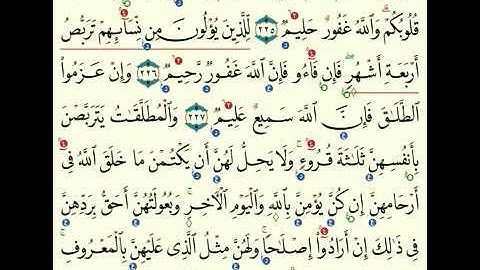 قُلُوبُكُمْ وَاللَّهُ غَفُورٌ حَلِيمٌ ٢٢٥ لِّلَّذِينَ يُؤْلُونَ مِن نِّسَآئِهِمْ تَرَبُّصُ
أَرْبَعَةِ أَشْهُرٍ فَإِن فَآءُو فَإِنَّ اللَّهَ غَفُورٌ رَّحِيمٌ ٢٢٦ وَإِنْ عَزَمُوا۟
الطَّلَٰقَ فَإِنَّ اللَّهَ سَمِيعٌ عَلِيمٌ ٢٢٧ وَالْمُطَلَّقَٰتُ يَتَرَبَّصْنَ
بِأَنفُسِهِنَّ ثَلَٰثَةَ قُرُوٓءٍ وَلَا يَحِلُّ لَهُنَّ أَن يَكْتُمْنَ مَا خَلَقَ اللَّهُ فِىٓ
أَرْحَامِهِنَّ إِن كُنَّ يُؤْمِنَّ بِاللَّهِ وَالْيَوْمِ الْءَاخِرِ وَبُعُولَتُهُنَّ أَحَقُّ بِرَدِّهِنَّ
فِى ذَٰلِكَ إِنْ أَرَادُوٓا۟ إِصْلَٰحًا وَلَهُنَّ مِثْلُ الَّذِى عَلَيْهِنَّ بِالْمَعْرُوفِ